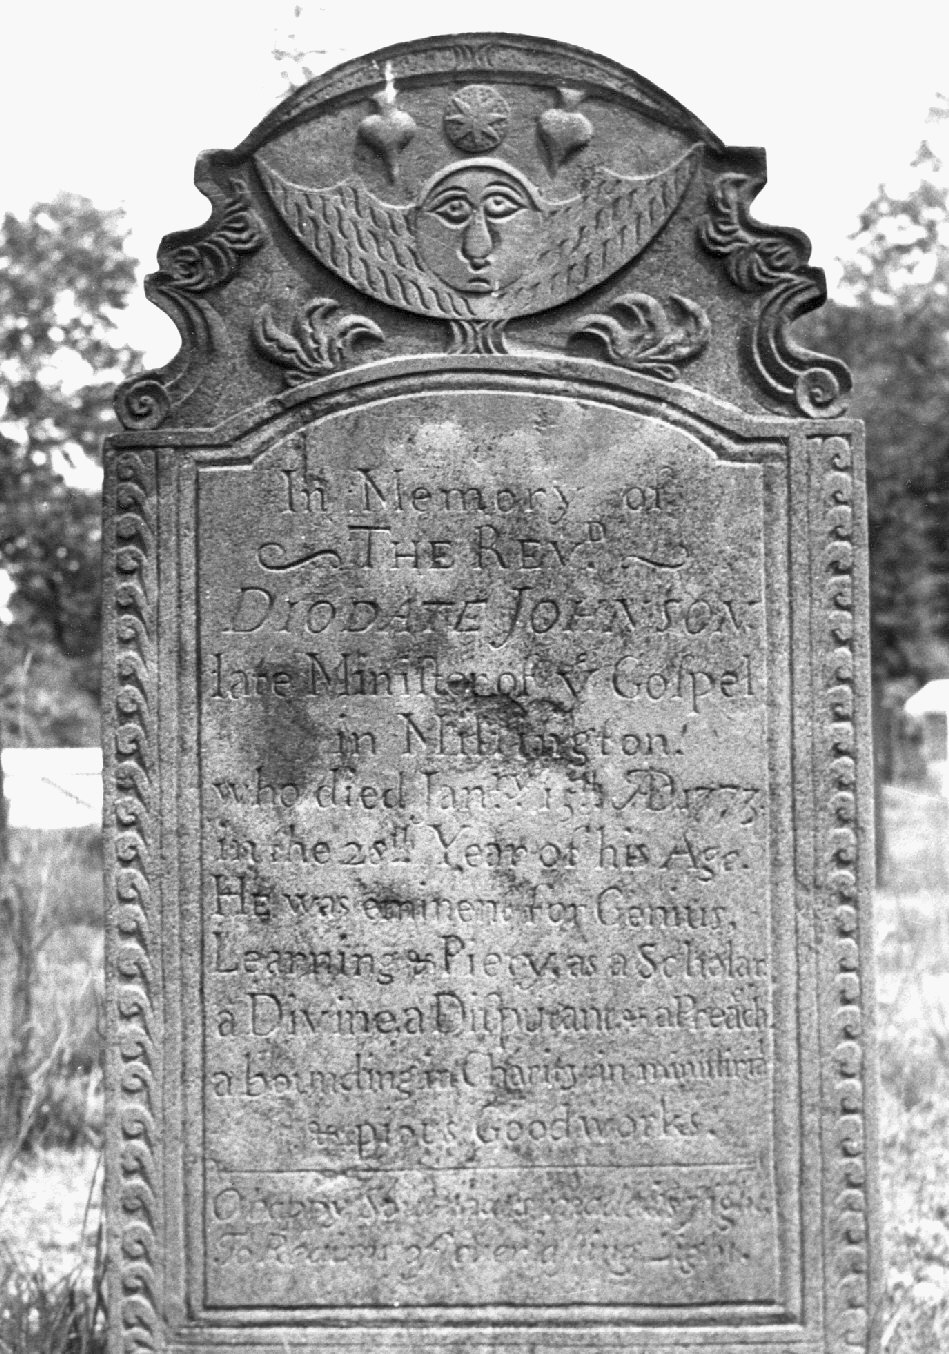 In Memory of
THE REVD.
DIODATE JOHNSON
late Miniſter of yͤ Goſpel
in Millington.
who died Janry 15th AD. 1773.
in the 28th Year of his Age.
HE was eminent for Genius,
Learning & Piety, as a Scholar
a Divine, a Diſputant, & a Preach
a bounding in Charity, in
& pious Good works.
O happy Soul
To Realms of Light.